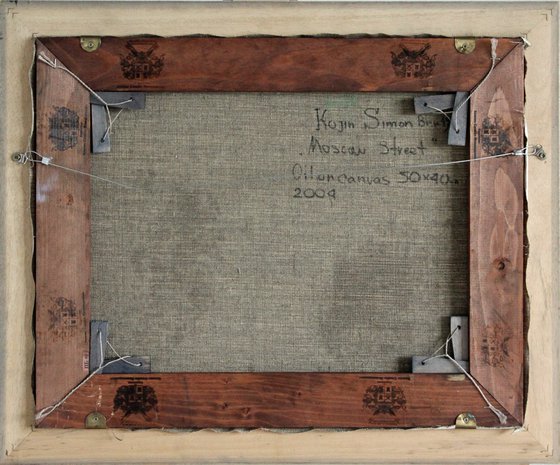 Kojin Simon
"Moscow Street"
Oil on canvas 50x40
2004